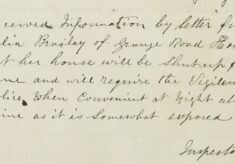 eceived Information by letter fr
lia Brailey of George Road Ho
t her house will be Shut up f
me and will require the Vigilen
lice. When Convenient at Night al
ime as it is Somewhat exposed
Inspecto